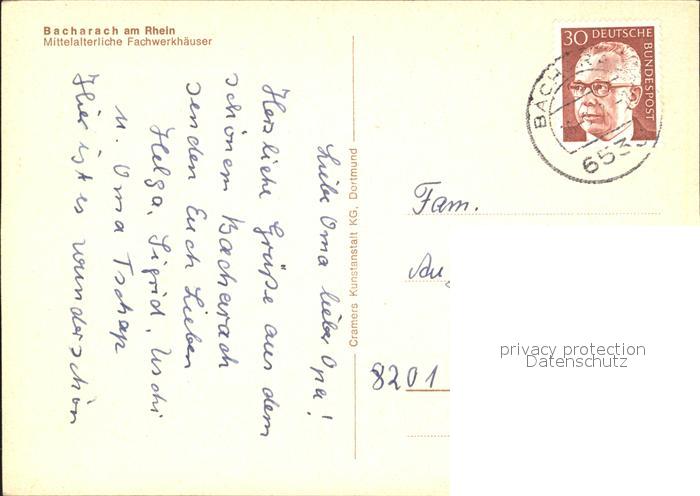 Bacharach am Rhein
Mittelalterliche Fachwerkhäuser
Liebe Oma lieber Opa!
Herzliche Grüße aus dem
schönem Bacharach
senden Euch Lieben
Helga, Sigrid, Uschi
u. Oma Tschap
Hier ist es wunderschön
Cramers Kunstanstalt KG, Dortmund
30 DEUTSCHE
BUNDESPOST
BACHARACH
653
Fam.
8201
privacy protection
Datenschutz